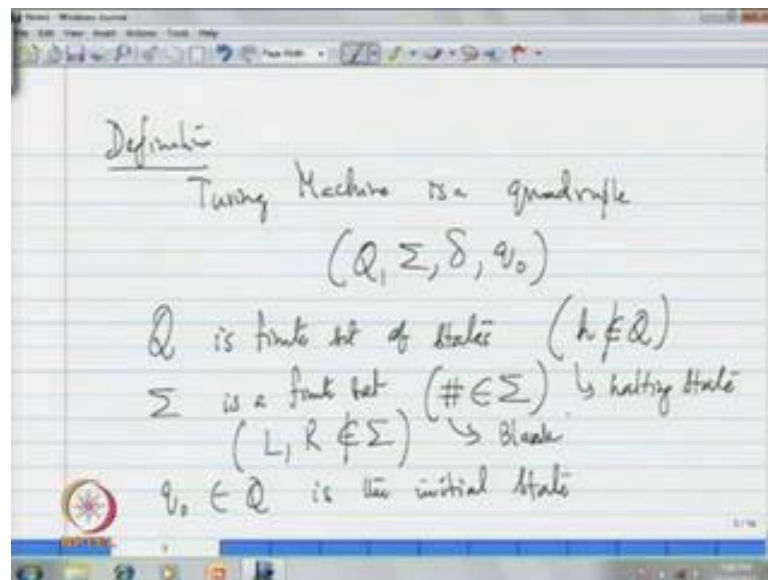 Definition
Turing Machine is a quadruple
(Q, Σ, δ, q₀)
Q is finite set of states (h ∉ Q)
↳ halting state
Σ is a finite set (# ∈ Σ)
↳ Blank
(L, R ∉ Σ)
q₀ ∈ Q is the initial state